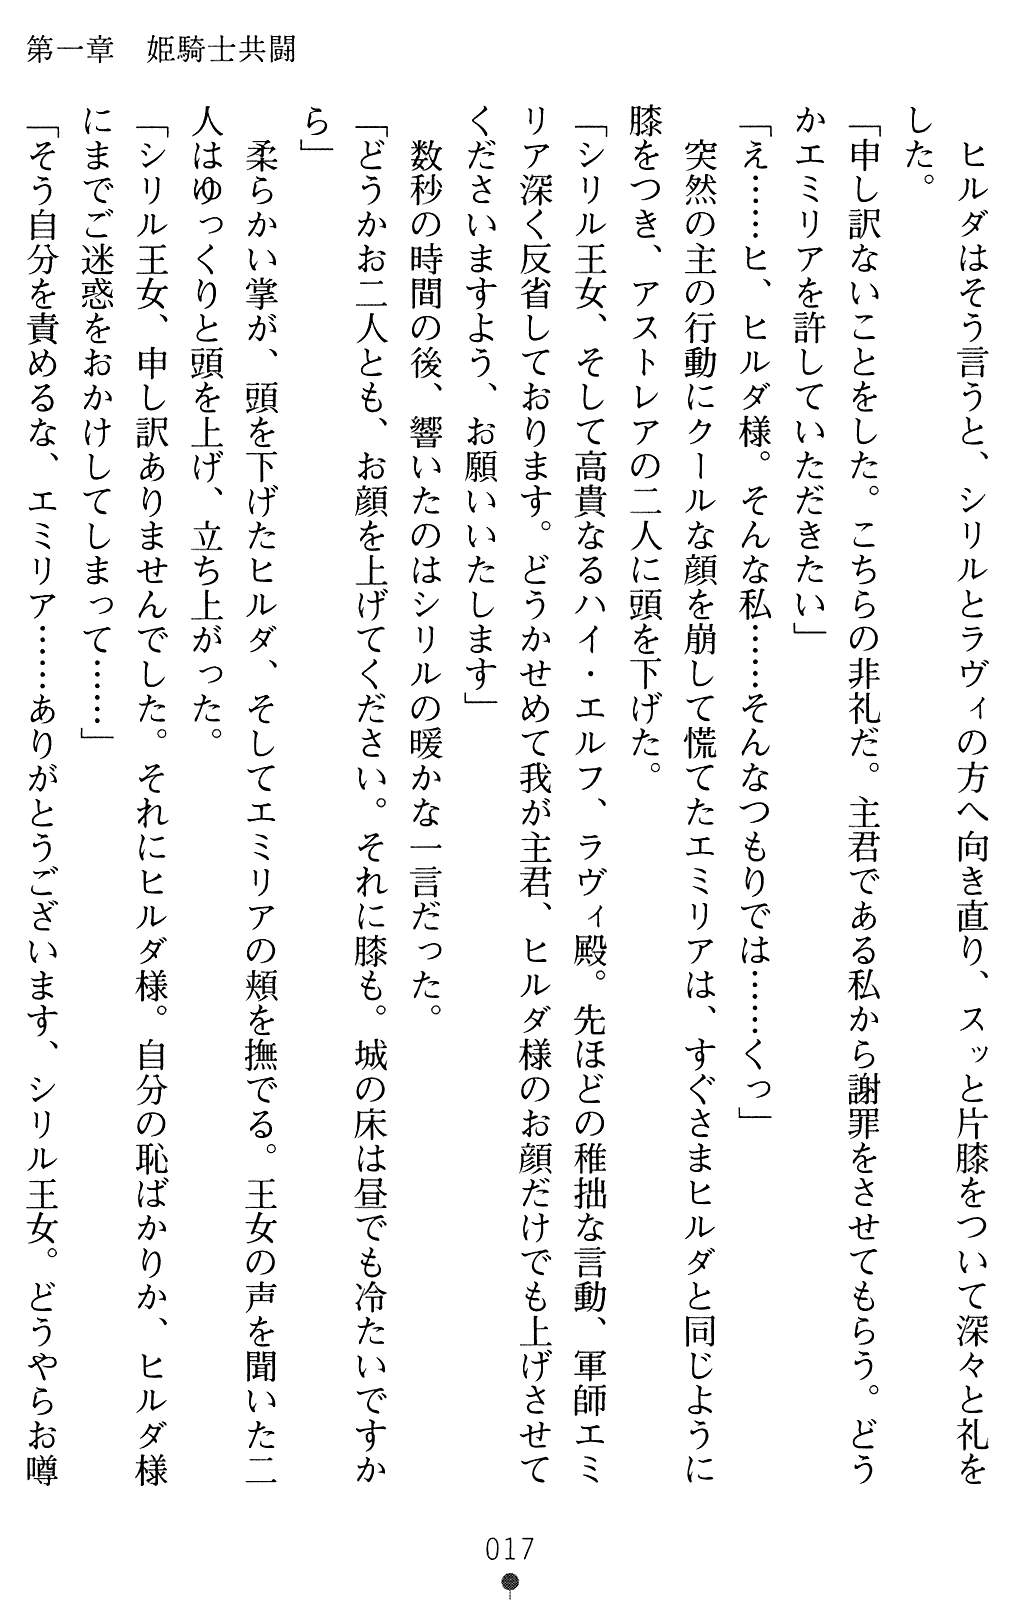 第一章　姫騎士共闘
　ヒルダはそう言うと、シリルとラヴィの方へ向き直り、スッと片膝をついて深々と礼を
した。
「申し訳ないことをした。こちらの非礼だ。主君である私から謝罪をさせてもらう。どう
かエミリアを許していただきたい」
「え……ヒ、ヒルダ様。そんな私……そんなつもりでは……くっ」
　突然の主の行動にクールな顔を崩して慌てたエミリアは、すぐさまヒルダと同じように
膝をつき、アストレアの二人に頭を下げた。
「シリル王女、そして高貴なるハイ・エルフ、ラヴィ殿。先ほどの稚拙な言動、軍師エミ
リア深く反省しております。どうかせめて我が主君、ヒルダ様のお顔だけでも上げさせて
くださいますよう、お願いいたします」
　数秒の時間の後、響いたのはシリルの暖かな一言だった。
「どうかお二人とも、お顔を上げてください。それに膝も。城の床は昼でも冷たいですか
ら」
　柔らかい掌が、頭を下げたヒルダ、そしてエミリアの頬を撫でる。王女の声を聞いた二
人はゆっくりと頭を上げ、立ち上がった。
「シリル王女、申し訳ありませんでした。それにヒルダ様。自分の恥ばかりか、ヒルダ様
にまでご迷惑をおかけしてしまって……」
「そう自分を責めるな、エミリア……ありがとうございます、シリル王女。どうやらお噂
017